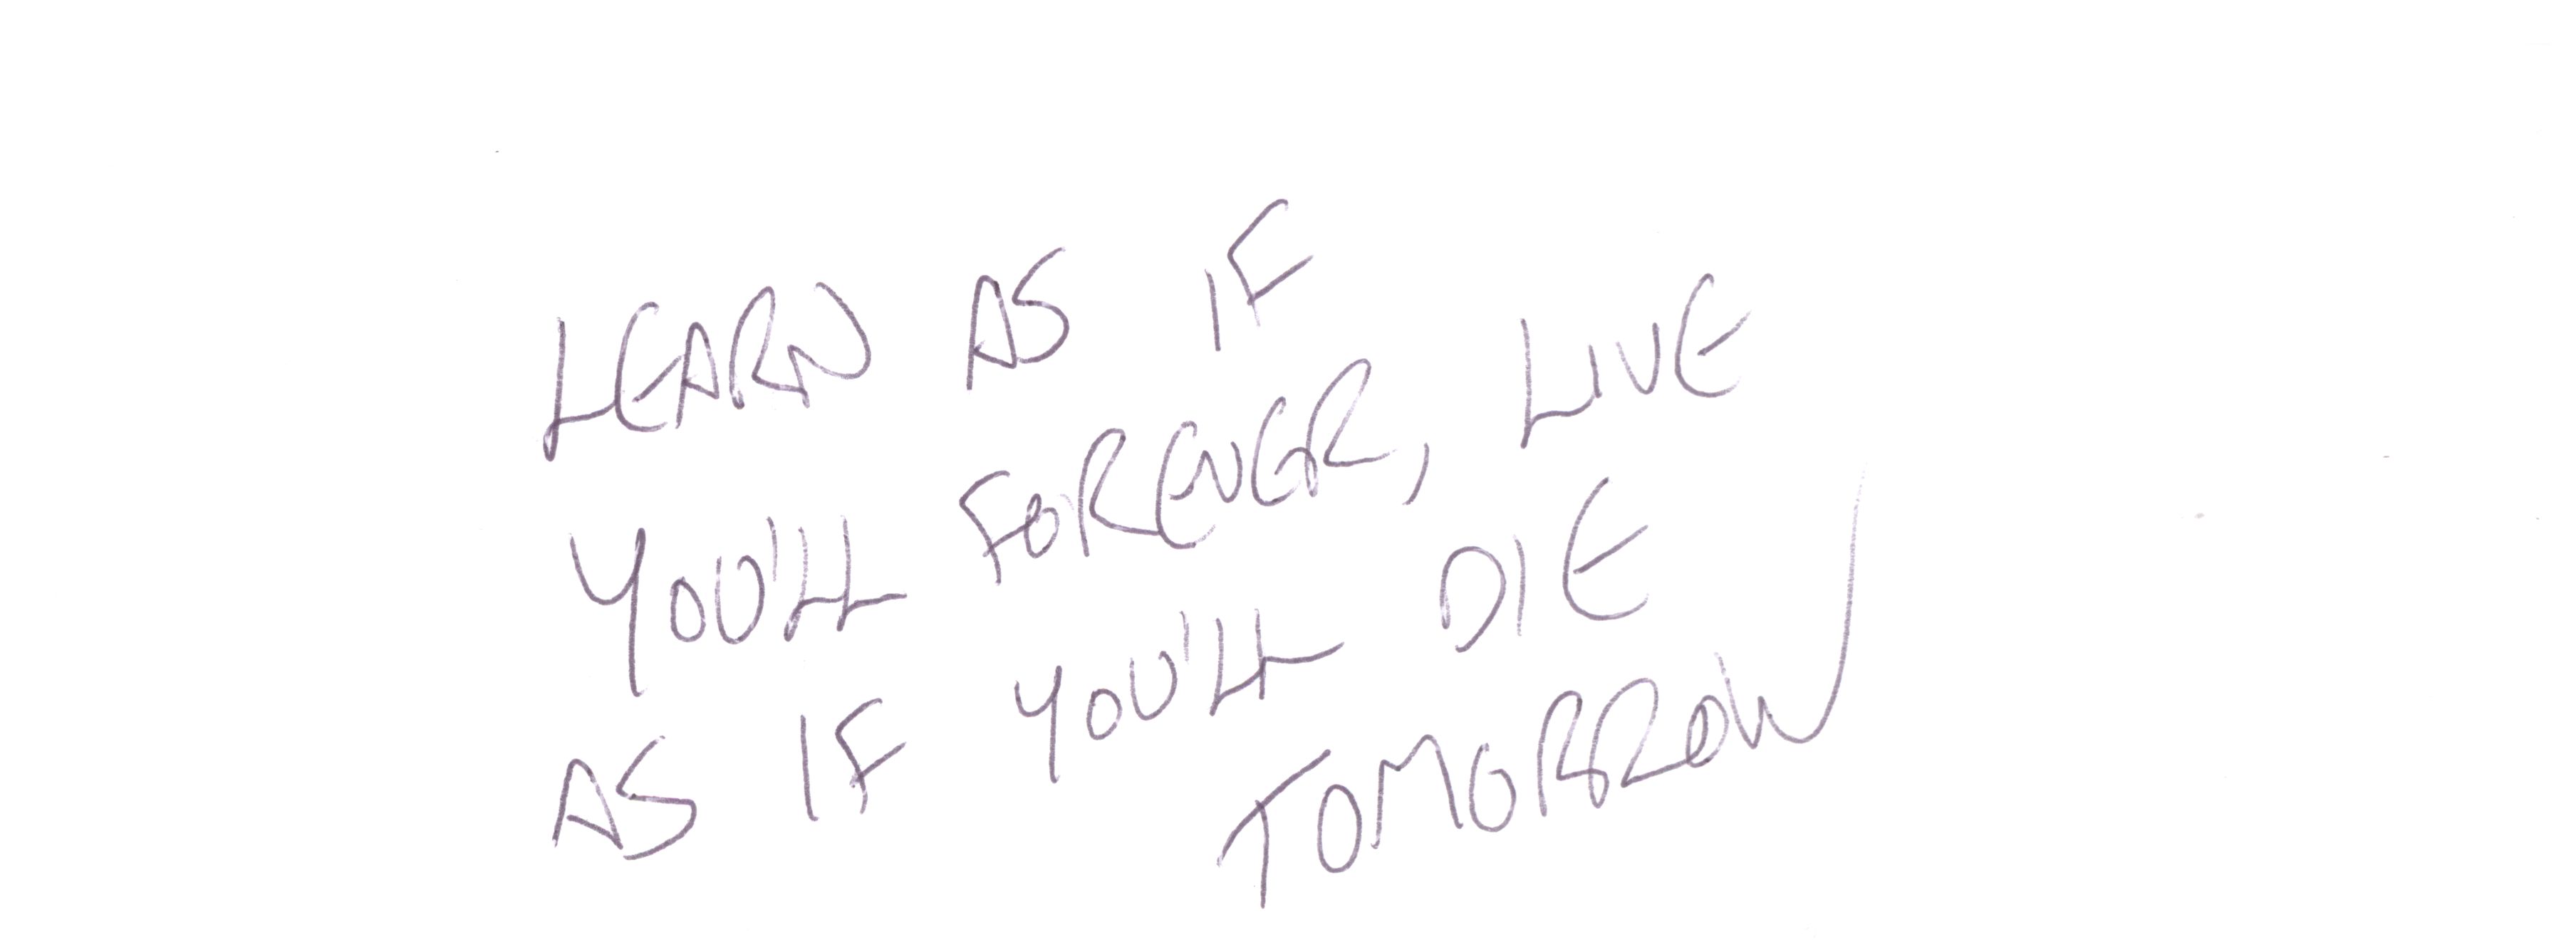 LEARN AS IF
YOU'LL FOREVER, LIVE
AS IF YOU'LL DIE
TOMORROW